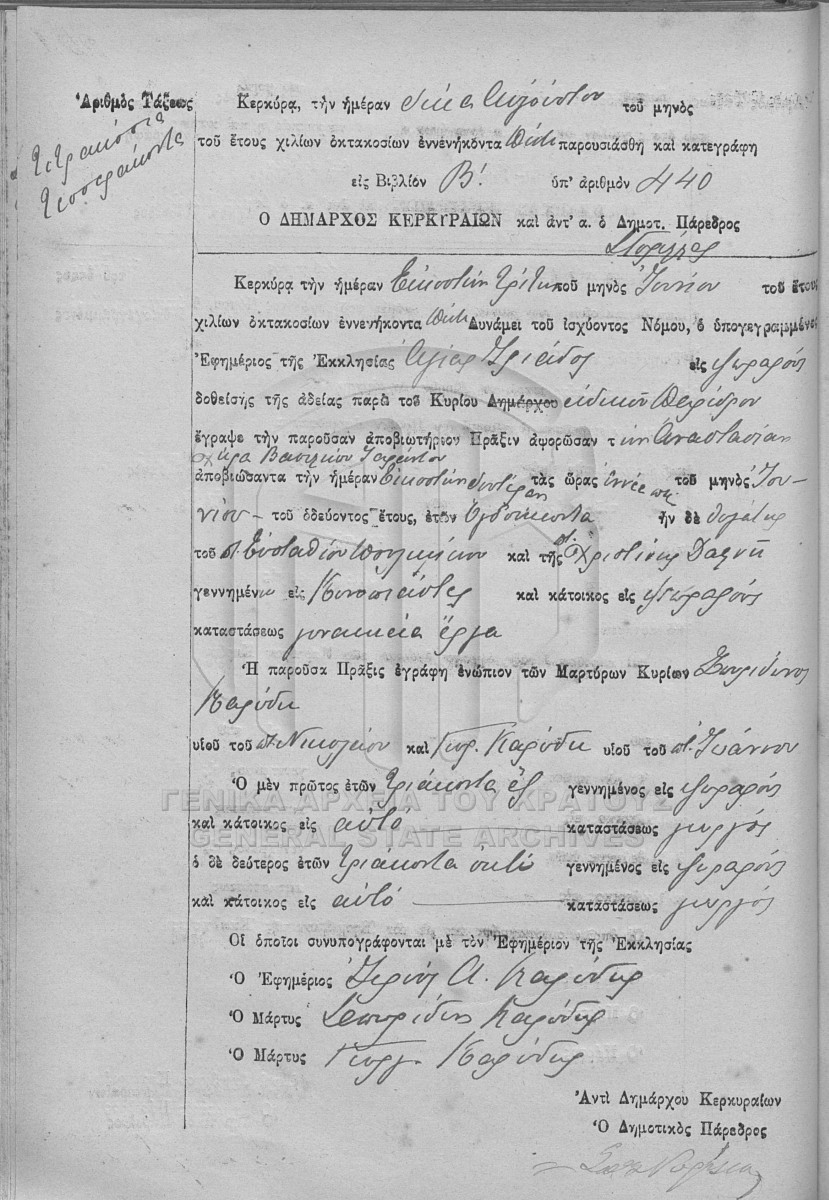 Ἀριθμὸς Τάξεως
Τετρακόσια
τεσσαράκοντα
Κερκύρᾳ, τὴν ἡμέραν δέκα Αὐγούστου τοῦ μηνὸς
τοῦ ἔτους χιλίων ὀκτακοσίων ἐννενήκοντα πέντε παρουσιάσθη καὶ κατεγράφη
εἰς Βιβλίον Β! ὑπ' ἀριθμὸν 440
Ο ΔΗΜΑΡΧΟΣ ΚΕΡΚΥΡΑΙΩΝ καὶ ἀντ' α. ὁ Δημοτ. Πάρεδρος
Κερκύρᾳ τὴν ἡμέραν Εἰκοστὴν τρίτην τοῦ μηνὸς Ἰουνίου τοῦ ἔτους
χιλίων ὀκτακοσίων ἐννενήκοντα πέντε Δυνάμει τοῦ ἰσχύοντος Νόμου, ὁ ὑπογεγραμμένος
Ἐφημέριος τῆς Ἐκκλησίας Ἁγίας Τριάδος εἰς Ψωραρούς
δοθείσης τῆς ἀδείας παρὰ τοῦ Κυρίου Δημάρχου εἰδικοῦ Παρέδρου
ἔγραψε τὴν παροῦσαν ἀποβιωτήριον Πρᾶξιν ἀφορῶσαν τ ὴν Ἀναστασίαν
χήρα Βασιλείου
ἀποβιώσαντα τὴν ἡμέραν Εἰκοστὴν δευτέραν τὰς ὥρας ἐννέα π.μ. τοῦ μηνὸς Ἰου-
νίου - τοῦ ὁδεύοντος ἔτους, ἐτῶν Ὀγδοήκοντα ἦν δὲ θυγάτηρ
τοῦ π. Εὐσταθίου καὶ τῆς π. Χριστίνης Δαφνῆ
γεννημένη εἰς Κυνοπιάστες καὶ κάτοικος εἰς Ψωραρούς
καταστάσεως γυναικεία ἔργα
Ἡ παροῦσα Πρᾶξις ἐγράφη ἐνώπιον τῶν Μαρτύρων Κυρίων Σπυρίδωνος
Καρύδη
υἱοῦ τοῦ π. Νικολάου καὶ Γεωρ. Καρύδη υἱοῦ τοῦ π. Ἰωάννου
Ὁ μὲν πρῶτος ἐτῶν τριάκοντα ἓξ γεννημένος εἰς Ψωραρούς
ΓΕΝΙΚΑ ΑΡΧΕΙΑ ΤΟΥ ΚΡΑΤΟΥΣ
καὶ κάτοικος εἰς αὐτό καταστάσεως γεωργός
GENERAL STATE ARCHIVES
ὁ δὲ δεύτερος ἐτῶν τριάκοντα ὀκτώ γεννημένος εἰς Ψωραρούς
καὶ κάτοικος εἰς αὐτό καταστάσεως γεωργός
Οἱ ὁποῖοι συνυπογράφονται μὲ τὸν Ἐφημέριον τῆς Ἐκκλησίας
Ὁ Ἐφημέριος Ἱερεύς Α. Καρύδης
Ὁ Μάρτυς Σπυρίδων Καρύδης
Ὁ Μάρτυς Γεώργ. Καρύδης
Ἀντὶ Δημάρχου Κερκυραίων
Ὁ Δημοτικὸς Πάρεδρος